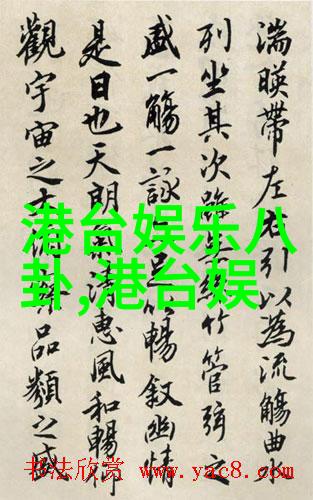 湍暎帶左右引以為流觴曲水
列坐其次雖無絲竹管弦之
盛一觴一詠足以暢敘幽情
是日也天朗氣清惠風和暢仰
觀宇宙之大俯察品類之盛
港台娱乐八
卦,港台娱
书法欣赏 www.yac8.com